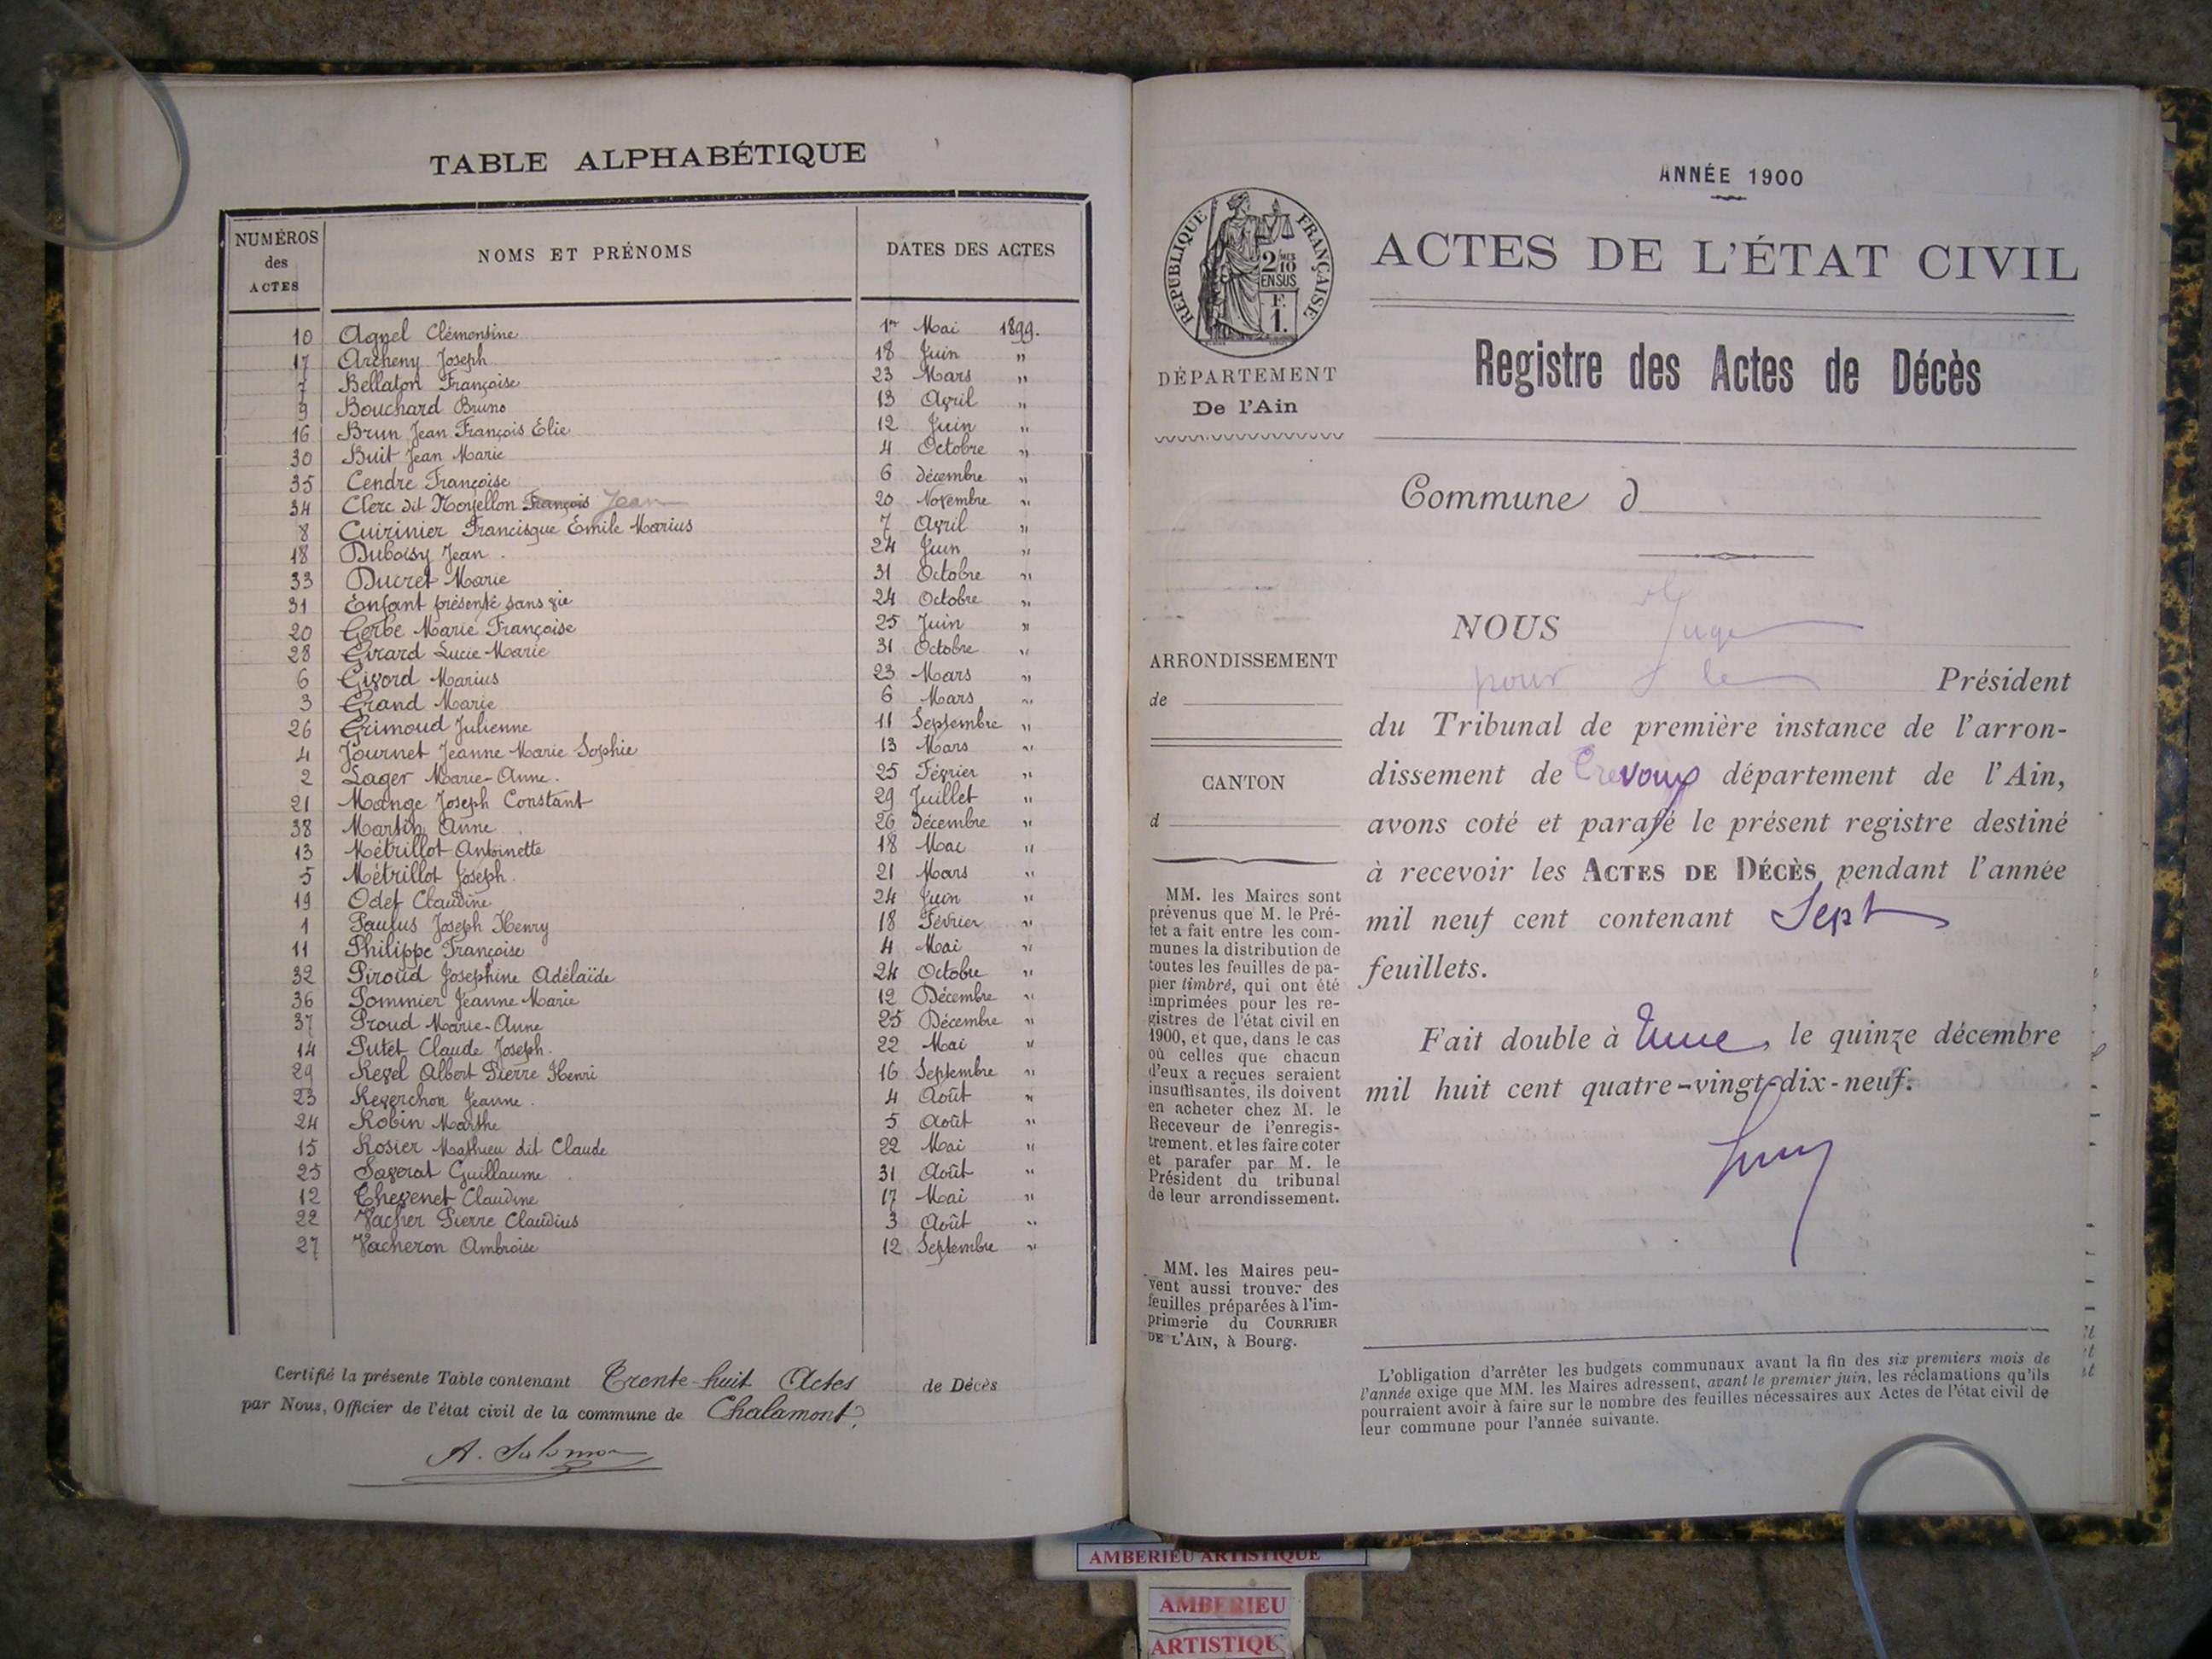 TABLE ALPHABÉTIQUE
NUMÉROS des ACTES NOMS ET PRÉNOMS DATES DES ACTES
10 Agnel Clémentine 1er Mai 1899.
17 Archeny Joseph 18 Juin "
7 Bellaton Françoise 23 Mars "
9 Bouchard Bruno 13 Avril "
16 Brun Jean François Élie 12 Juin "
30 Buit Jean Marie 4 Octobre "
35 Cendre Françoise 6 décembre "
34 Clerc dit Noyellon François Jean 20 Novembre "
8 Cuirinier Francisque Émile Marius 7 Avril "
18 Duboisy Jean . 24 Juin "
33 Ducret Marie 31 Octobre "
31 Enfant présenté sans vie 24 Octobre "
20 Gerbe Marie Françoise 25 Juin "
28 Girard Lucie Marie 31 Octobre "
6 Givord Marius 23 Mars "
3 Grand Marie 6 Mars "
26 Grimoud Julienne 11 Septembre "
4 Journet Jeanne Marie Sophie 13 Mars "
2 Lager Marie-Anne. 25 Février "
21 Mange Joseph Constant 29 Juillet "
38 Martin Anne 26 Décembre "
13 Métrillot Antoinette 18 Mai "
5 Métrillot Joseph. 21 Mars "
19 Odet Claudine 24 Juin "
1 Paulus Joseph Henry 18 Février "
11 Philippe Françoise 4 Mai "
32 Piroud Josephine Adélaïde 24 Octobre "
36 Pommier Jeanne Marie 12 Décembre "
37 Proud Marie-Anne 25 Décembre "
14 Putet Claude Joseph. 22 Mai "
29 Revel Albert Pierre Henri 16 Septembre "
23 Reverchon Jeanne . 4 Août "
24 Robin Marthe 5 Août "
15 Rosier Mathieu dit Claude 22 Mai "
25 Saverat Guillaume 31 Août "
12 Thevenet Claudine 17 Mai "
22 Vacher Pierre Claudius 3 Août "
27 Vacheron Ambroise 12 Septembre "
Certifié la présente Table contenant Trente-huit Actes de Décès
par Nous, Officier de l'état civil de la commune de Chalamont.
A. Salomon
ANNÉE 1900
RÉPUBLIQUE FRANÇAISE
2/10 MES
EN SUS
F.
1.
ACTES DE L'ÉTAT CIVIL
Registre des Actes de Décès
DÉPARTEMENT
De l'Ain
Commune d
ARRONDISSEMENT
de
CANTON
d
MM. les Maires sont
prévenus que M. le Pré-
fet a fait entre les com-
munes la distribution de
toutes les feuilles de pa-
pier timbré, qui ont été
imprimées pour les re-
gistres de l'état civil en
1900, et que, dans le cas
où celles que chacun
d'eux a reçues seraient
insuffisantes, ils doivent
en acheter chez M. le
Receveur de l'enregis-
trement, et les faire coter
et parafer par M. le
Président du tribunal
de leur arrondissement.
MM. les Maires peu-
vent aussi trouver des
feuilles préparées à l'im-
primerie du COURRIER
DE L'AIN, à Bourg.
NOUS Juge
pour le Président
du Tribunal de première instance de l'arron-
dissement de Trevoux département de l'Ain,
avons coté et parafé le présent registre destiné
à recevoir les ACTES DE DÉCÈS pendant l'année
mil neuf cent contenant Sept
feuillets.
Fait double à , le quinze décembre
mil huit cent quatre-vingt-dix-neuf.
L'obligation d'arrêter les budgets communaux avant la fin des six premiers mois de
l'année exige que MM. les Maires adressent, avant le premier juin, les réclamations qu'ils
pourraient avoir à faire sur le nombre des feuilles nécessaires aux Actes de l'état civil de
leur commune pour l'année suivante.
AMBERIEU ARTISTIQUE
AMBERIEU
ARTISTIQU